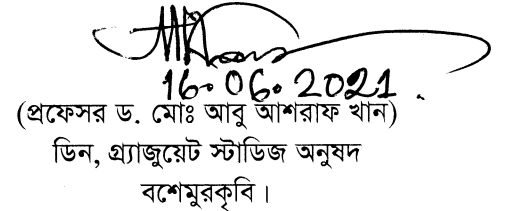 16.06.2021
(প্রফেসর ড. মোঃ আবু আশরাফ খান)
ডিন, গ্র্যাজুয়েট স্টাডিজ অনুষদ
বশেমুরকৃবি।